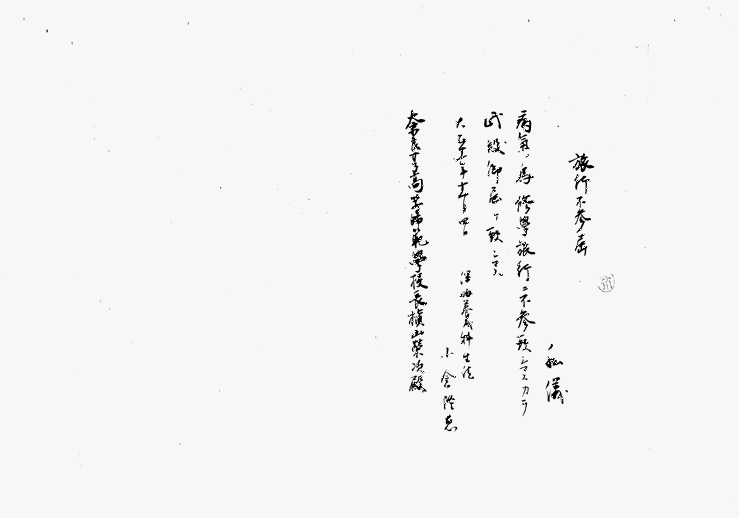 旅行不参届
私儀
病氣ノ為修學旅行ニ不参致シマスカラ
此段御届ケ致シマス
大正十七年十一月四日
保姆養成科生徒
小倉
奈良女子高等師範學校長槇山榮次殿